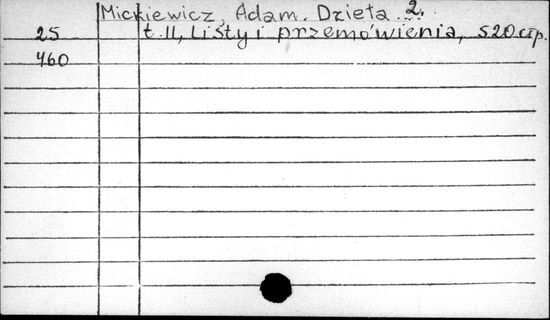 Mickiewicz, Adam. Dzieła. 2.
25 t. II, Listy i przemówienia, 520 стр.
460